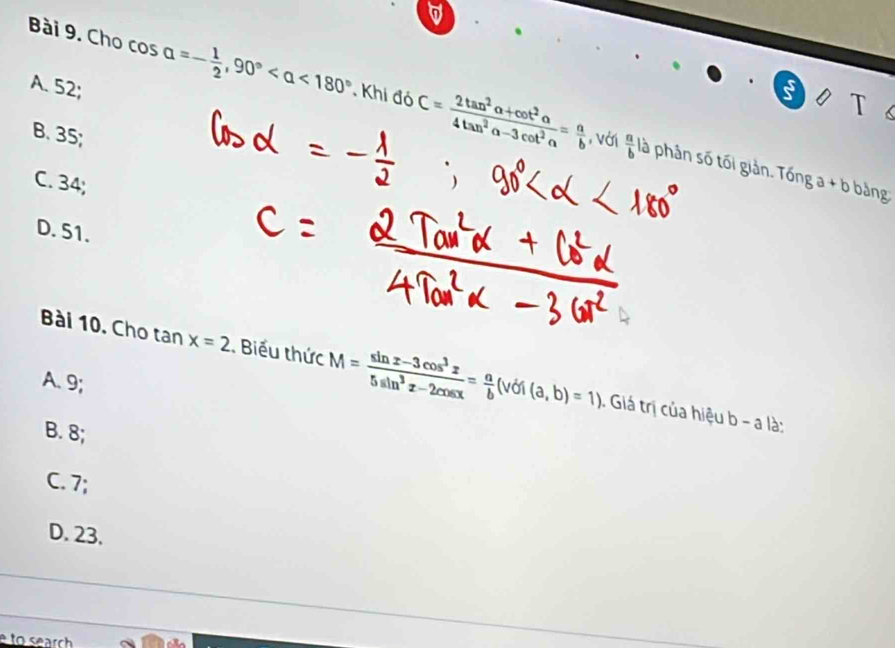 Bài 9. Cho cos α = -1/2, 90° < α < 180°. Khi đó C = (2tan²α+cot²α)/(4tan²α-3cot²α) = a/b, với a/b là phân số tối giản. Tổng a + b bằng:
A. 52;
B. 35;
C. 34;
D. 51.
Cos α = -1/2 ; 90° < α < 180°
C = (2Tan²α + Co²α)/(4Tan²α - 3 Cot²
Bài 10. Cho tan x = 2. Biểu thức M = (sin x-3cos³x)/(5sin³x-2cosx) = a/b (với (a, b) = 1). Giá trị của hiệu b - a là:
A. 9;
B. 8;
C. 7;
D. 23.
e to search
T